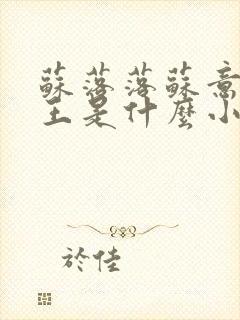 蘇落落蘇意
王是什麼小
於佳